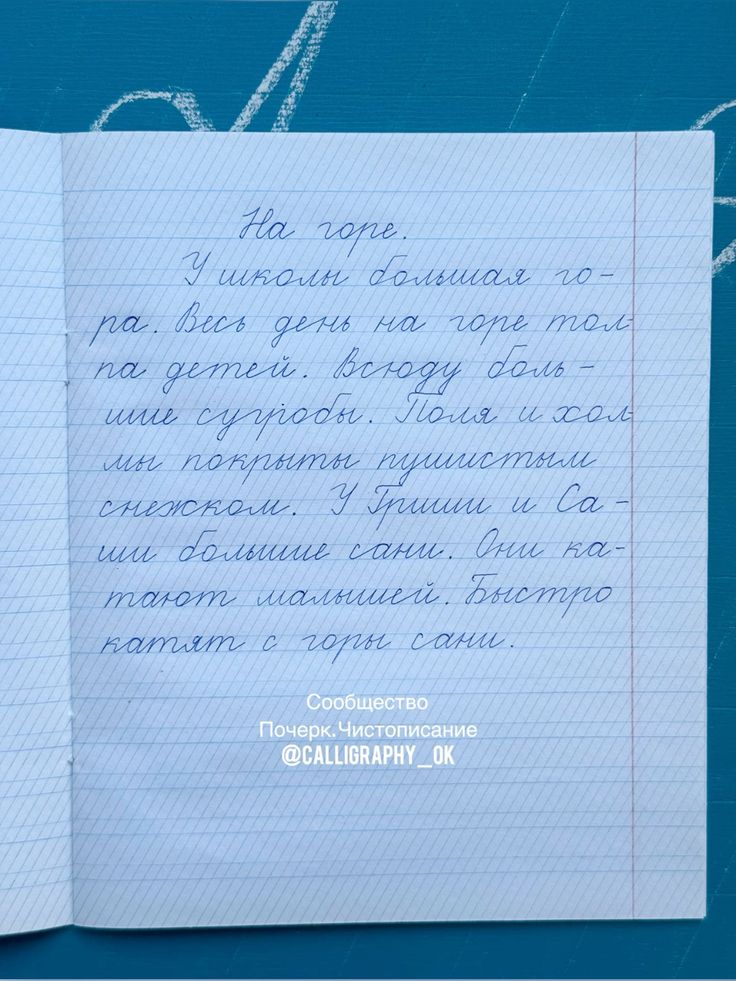 На горе.
У школы большая го-
ра. Весь день на горе тол-
па детей. Всюду боль-
шие сугробы. Поля и хол-
мы покрыты пушистым
снежком. У Гриши и Са-
ши большие сани. Они ка-
тают малышей. Быстро
катят с горы сани.
Сообщество
Почерк.Чистописание
@CALLIGRAPHY_OK